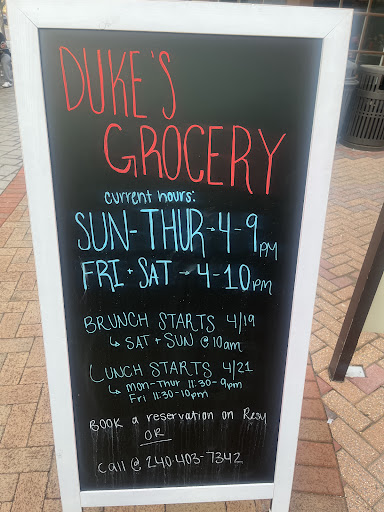 DUKE'S
GROCERY
current hours:
SUN-THUR-4-9pm
FRI + SAT - 4-10pm
BRUNCH STARTS 4/19
↳ SAT + SUN @ 10am
LUNCH STARTS 4/21
↳ Mon-Thur 11:30-9pm
Fri 11:30-10pm
BOOK a reservation on Resy
OR
Call @ 240-403-7342